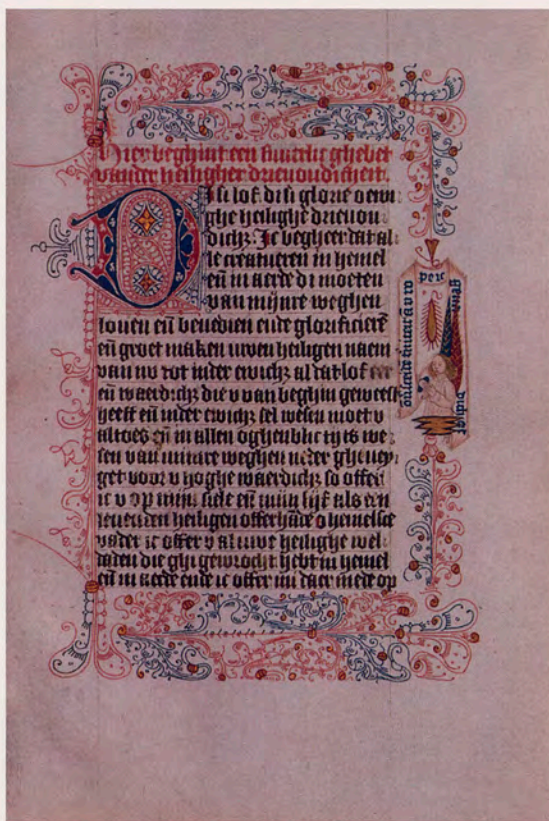 Hier beghint een suuerlic ghebet
vander heiligher drieuoudichert.
Di si lof di si glorie o ewi
ghe heilighe drieuou
dich&. Ic begheer dat al
le creatueren in hemel
en̄ in aerde di moeten
van mijnre weghen
louen en̄ benedien ende glorificierē
en̄ groet maken uwen heiligen naem
van nv tot inder ewich& al dat lof eer
en̄ waerdich& die v van beghin geweest
heeft en̄ inder ewich& sel wesen moet v
altoes en̄ in allen oghenblic tijts we
sen van minre weghen neder gheney
get voor v hoghe waerdich& so offer
ic v op mijn siele en̄ mijn lijf als een
leuenden heiligen offerhāde o hemelsce
vader ic offer v al uwe heilighe wel
daden die ghi gewrocht hebt in hemel
en̄ in aerde ende ic offer mi daer mede op